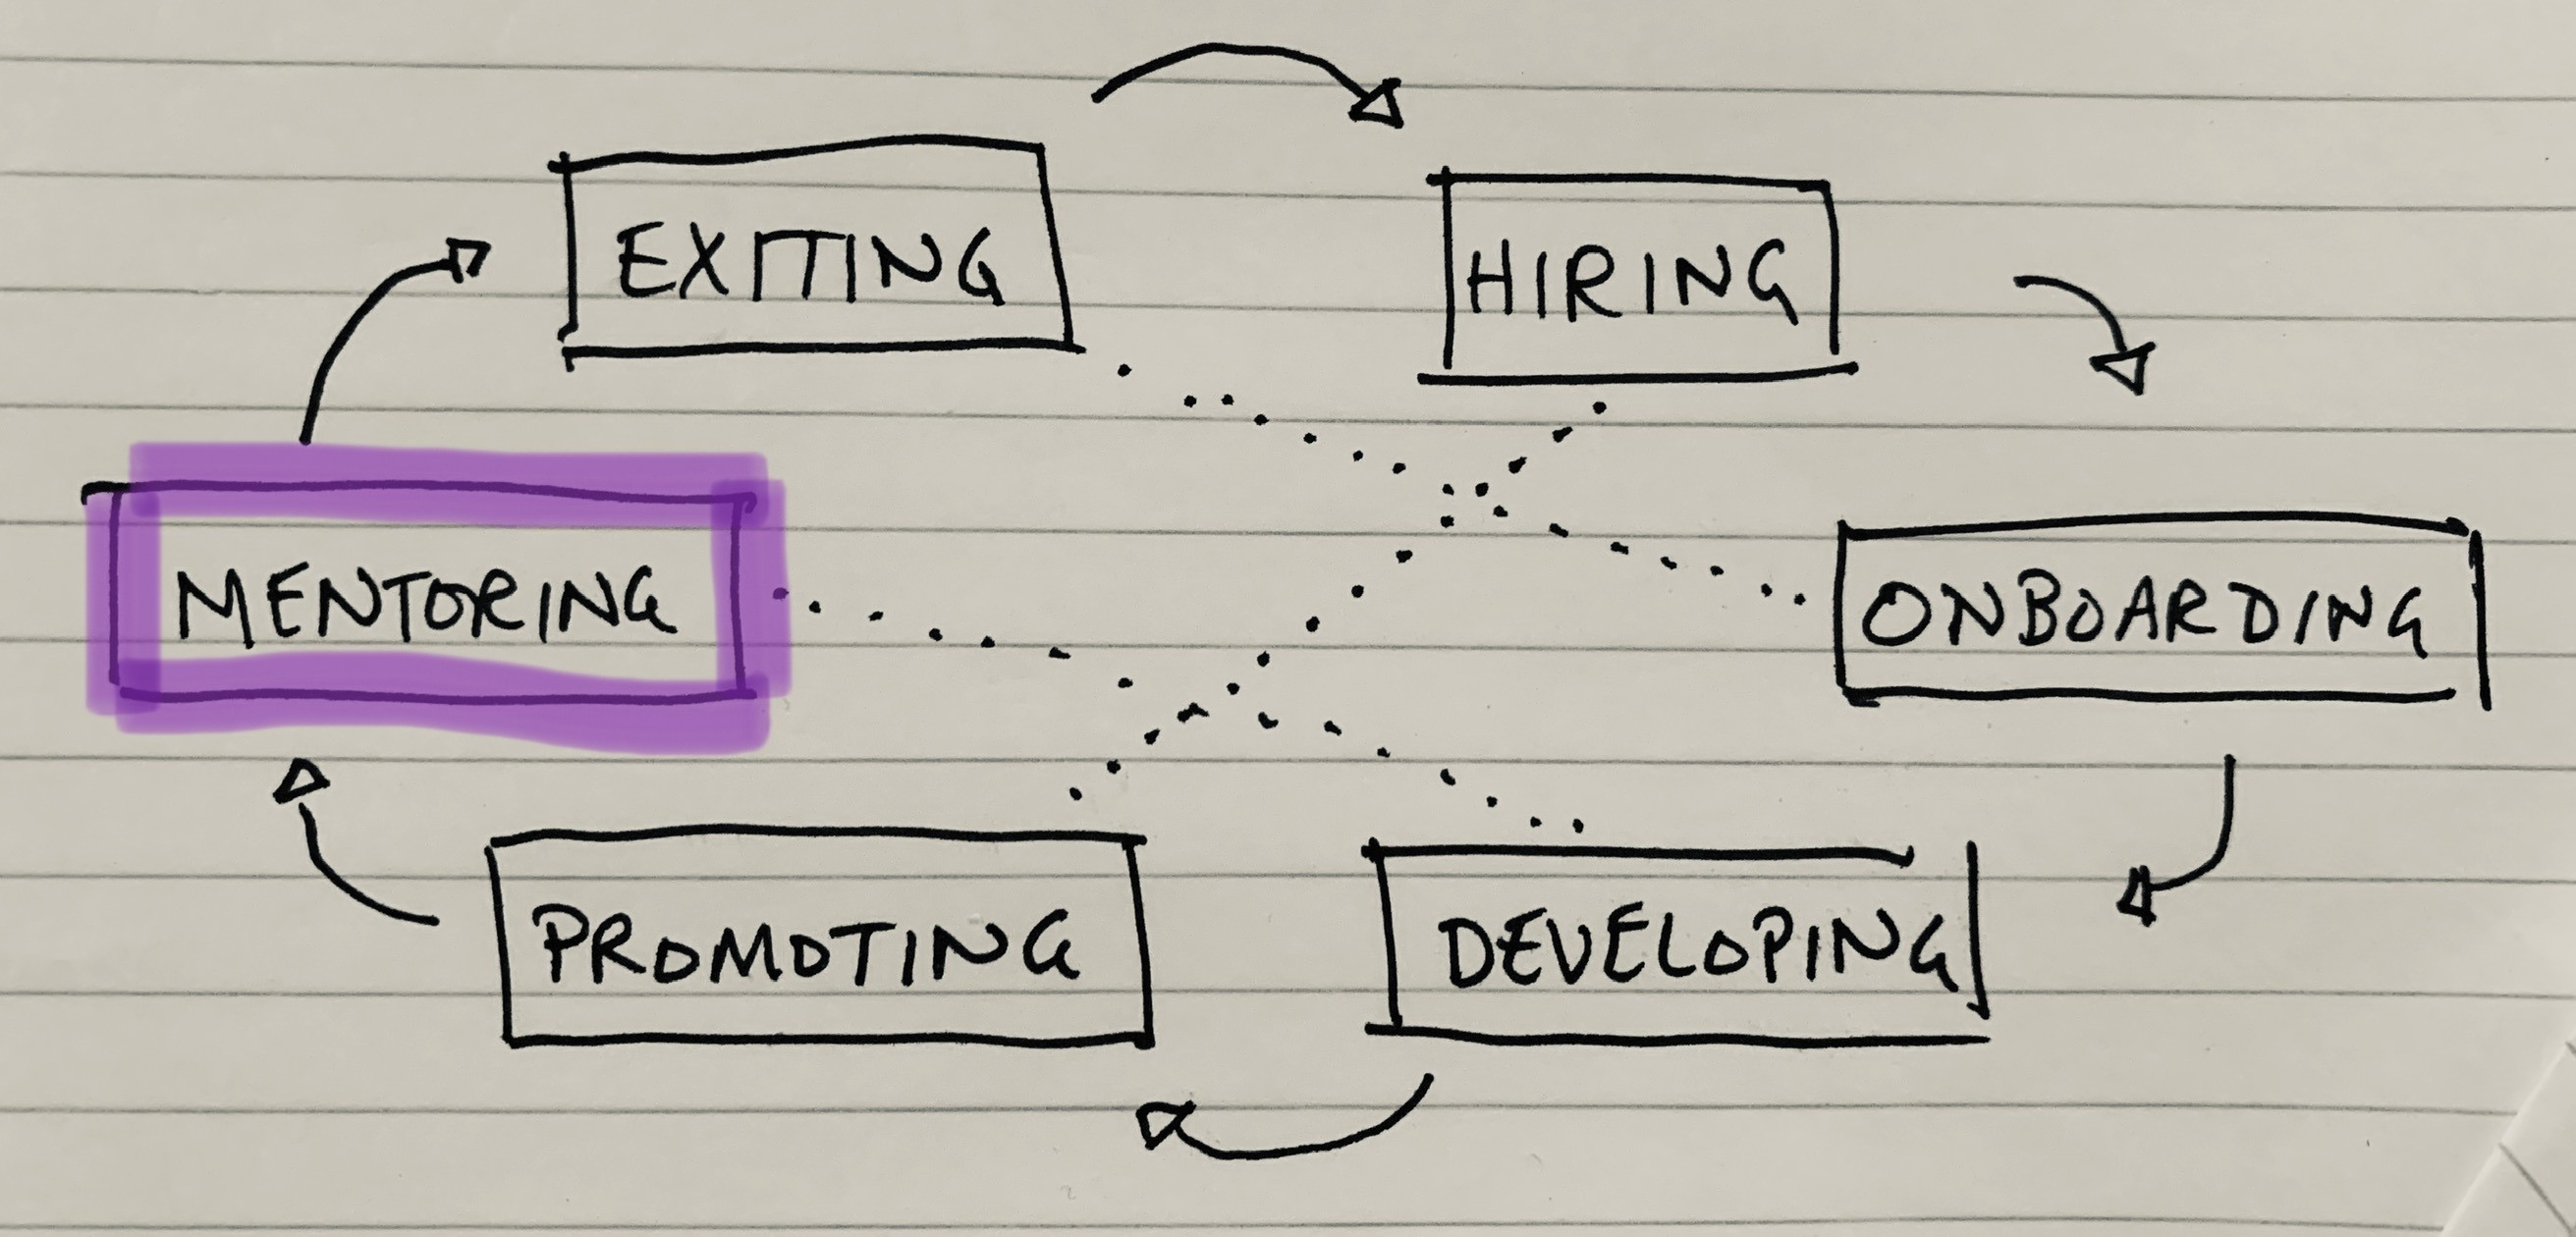 EXITING
HIRING
MENTORING
ONBOARDING
PROMOTING
DEVELOPING